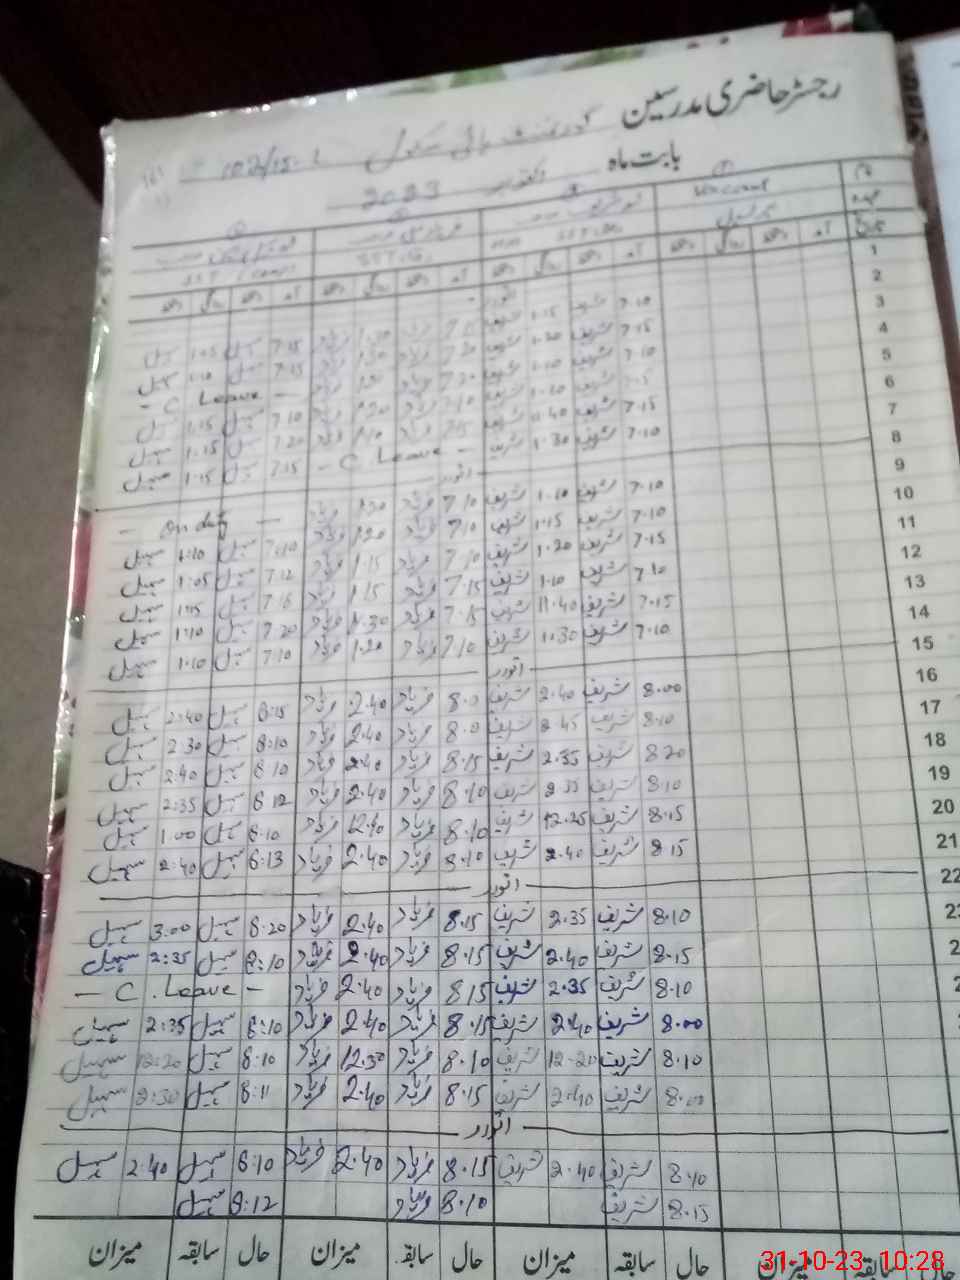 رجسٹر حاضری مدرسین گورنمنٹ ہائی سکول 102/15-L
بابت ماہ اکتوبر 2023
Vacant
SST
1 اتوار
2 7.10 شریف 1.15 شریف 7.15 فریاد 1.30 فریاد 7.15 سہیل 1.05 سہیل
3 7.15 شریف 1.20 شریف 7.20 فریاد 1.30 فریاد 7.15 سہیل 1.10 سہیل
4 7.10 شریف 1.10 شریف 7.20 فریاد 1.30 فریاد - C. Leave -
5 7.5 شریف 1.20 شریف 7.10 فریاد 1.20 فریاد 7.10 سہیل 1.15 سہیل
6 7.15 شریف 11.40 شریف 7.15 فریاد 1.10 فریاد 7.20 سہیل 1.15 سہیل
7 7.10 شریف 1.30 شریف - C. Leave - 7.15 سہیل 1.15 سہیل
8 اتوار
9 7.10 شریف 1.10 شریف 7.10 فریاد 1.30 فریاد - On duty -
10 7.10 شریف 1.15 شریف 7.10 فریاد 1.20 فریاد 7.10 سہیل 1:10 سہیل
11 7.15 شریف 1.20 شریف 7.10 فریاد 1.15 فریاد 7.12 سہیل 1:05 سہیل
12 7.10 شریف 1.10 شریف 7.15 فریاد 1.15 فریاد 7.15 سہیل 1:15 سہیل
13 7.15 شریف 11.40 شریف 7.15 فریاد 1.30 فریاد 7.20 سہیل 1:10 سہیل
14 7.10 شریف 1.30 شریف 7.10 فریاد 1.20 فریاد 7.10 سہیل 1.10 سہیل
15 اتوار
16 8.00 شریف 2.40 شریف 8.0 فریاد 2.40 فریاد 8:15 سہیل 2:40 سہیل
17 8.10 شریف 2.45 شریف 8.0 فریاد 2.40 فریاد 8:10 سہیل 2:30 سہیل
18 8.20 شریف 2.35 شریف 8.15 فریاد 2.40 فریاد 8:10 سہیل 2:40 سہیل
19 8.10 شریف 2.35 شریف 8.10 فریاد 2.40 فریاد 8:12 سہیل 2:35 سہیل
20 8.15 شریف 12.25 شریف 8.10 فریاد 12.10 فریاد 8:10 سہیل 1:00 سہیل
21 8.15 شریف 2.40 شریف 8.10 فریاد 2.40 فریاد 8:13 سہیل 2:40 سہیل
22 اتوار
8.10 شریف 2.35 شریف 8.15 فریاد 2.40 فریاد 8:20 سہیل 3:00 سہیل
8.15 شریف 2.40 شریف 8.15 فریاد 2.40 فریاد 8:10 سہیل 2:35 سہیل
8.10 شریف 2.35 شریف 8.15 فریاد 2.40 فریاد - C. Leave -
8.00 شریف 2.40 شریف 8.15 فریاد 2.40 فریاد 8:10 سہیل 2:35 سہیل
8.10 شریف 12.20 شریف 8.10 فریاد 12.30 فریاد 8:10 سہیل 12:20 سہیل
8.00 شریف 2.40 شریف 8.15 فریاد 2.40 فریاد 8:11 سہیل 2:30 سہیل
اتوار
8.10 شریف 2.40 شریف 8.15 فریاد 2.40 فریاد 8:10 سہیل 2:40 سہیل
8.15 شریف 8.10 فریاد 8:12 سہیل
حال سابقہ میزان حال سابقہ میزان حال سابقہ میزان حال سابقہ میزان
31-10-23 10:28